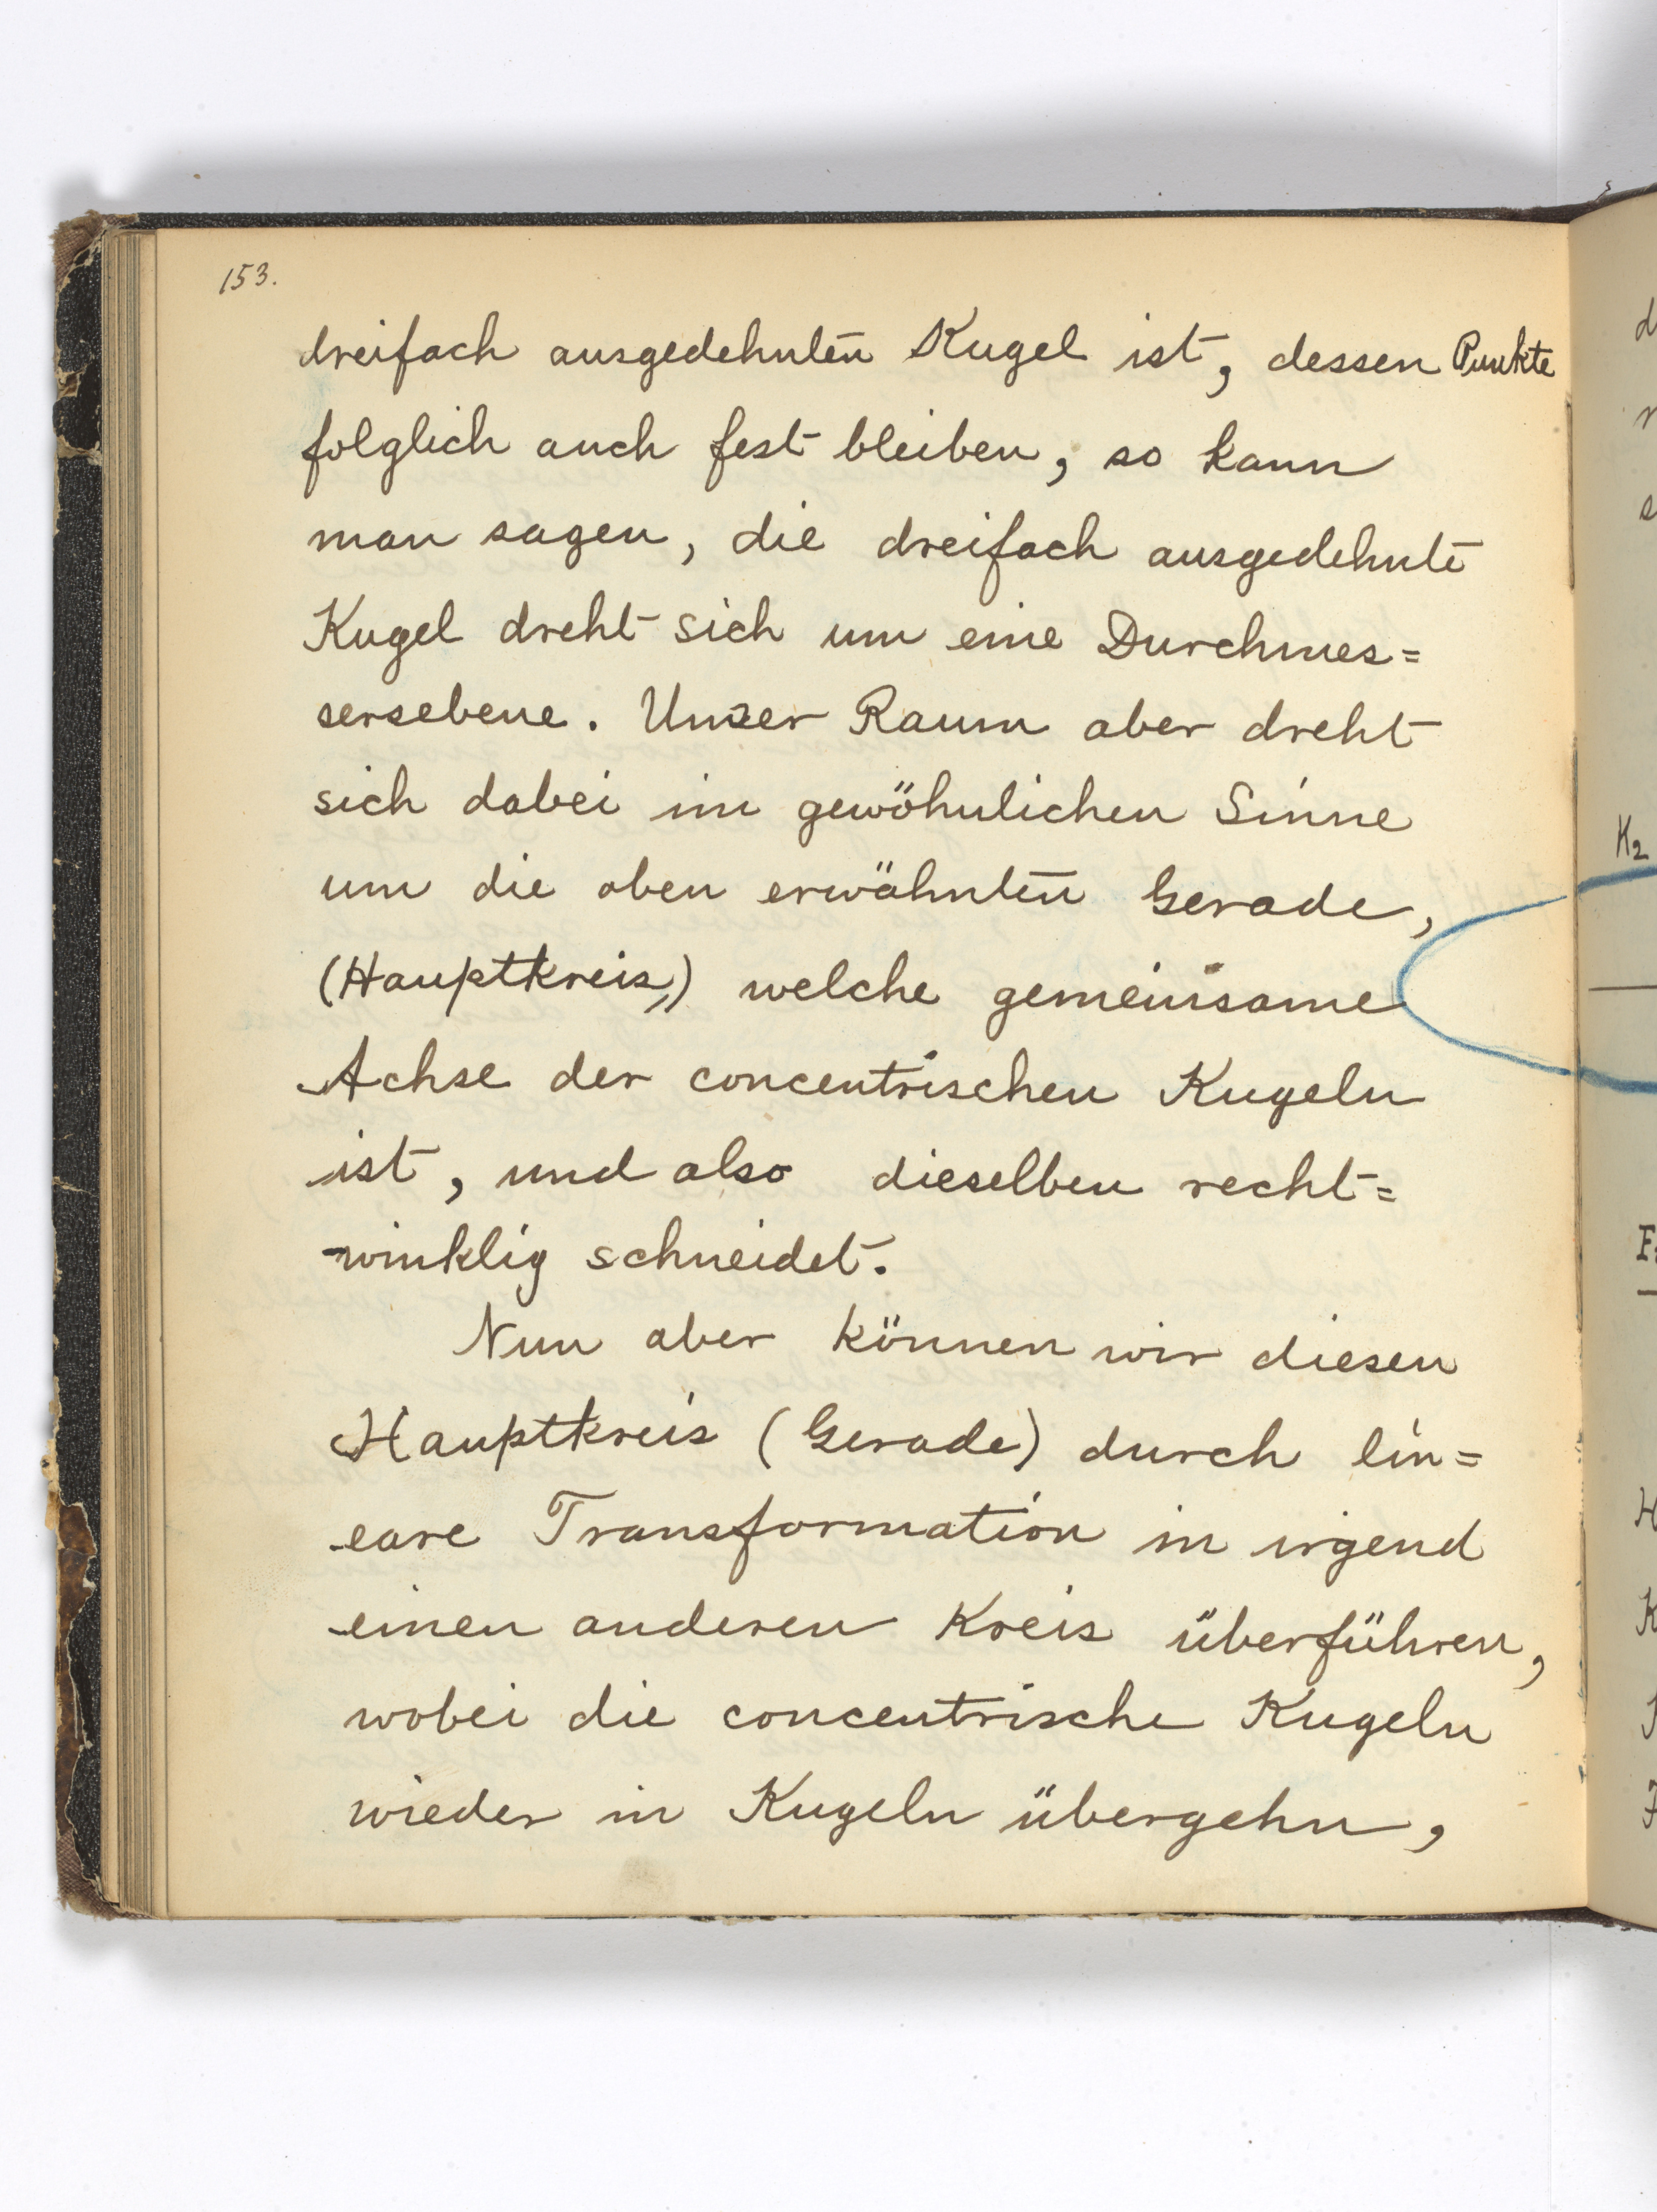 153.
dreifach ausgedehnten Kugel ist, dessen Punkte
folglich auch fest bleiben, so kann
man sagen, die dreifach ausgedehnte
Kugel dreht sich um eine Durchmes=
sersebene. Unser Raum aber dreht
sich dabei im gewöhnlichen Sinne
um die oben erwähnten Gerade,
(Hauptkreis,) welche gemeinsame
Achse der concentrischen Kugeln
ist, und also dieselben recht=
winklig schneidet.
Nun aber können wir diesen
Hauptkreis (Gerade) durch lin=
eare Transformation in irgend
einen anderen Kreis überführen,
wobei die concentrische Kugeln
wieder in Kugeln übergehn,
K2